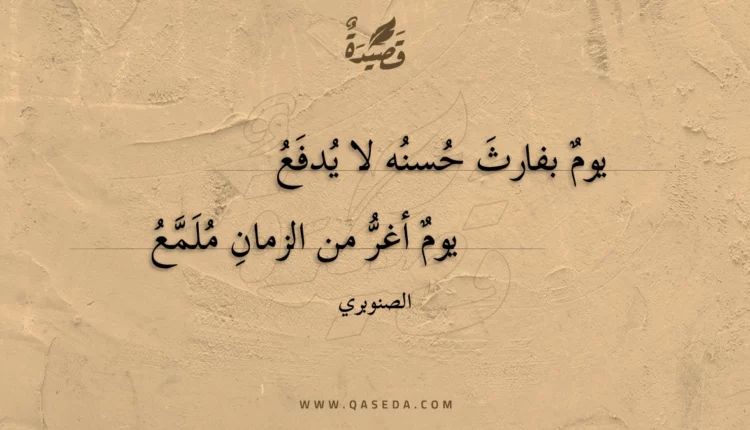 قَصِيدَةٌ
يومٌ بفارثَ حُسنُه لا يُدفَعُ
يومٌ أغرُّ من الزمانِ مُلَمَّعُ
الصنوبري
WWW.QASEDA.COM